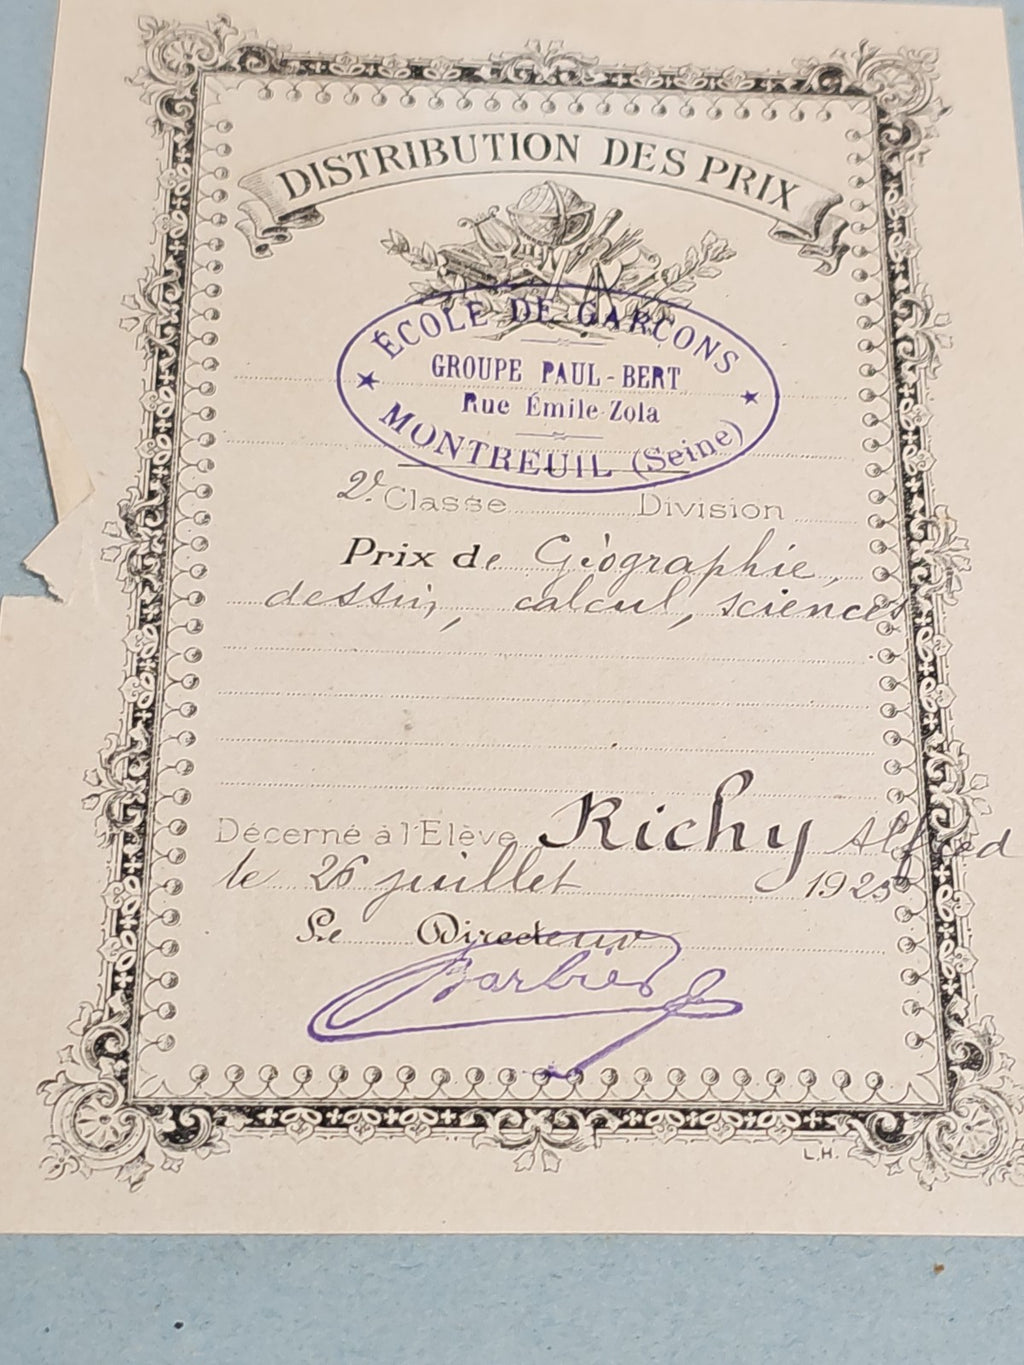 DISTRIBUTION DES PRIX
ÉCOLE DE GARÇONS
GROUPE PAUL-BERT
Rue Émile-Zola
MONTREUIL (Seine)
2e Classe Division
Prix de Géographie,
dessin, calcul, sciences
Décerné à l'Elève Richy Alfred
le 26 juillet 1923
Le Directeur
Barbier
L.H.